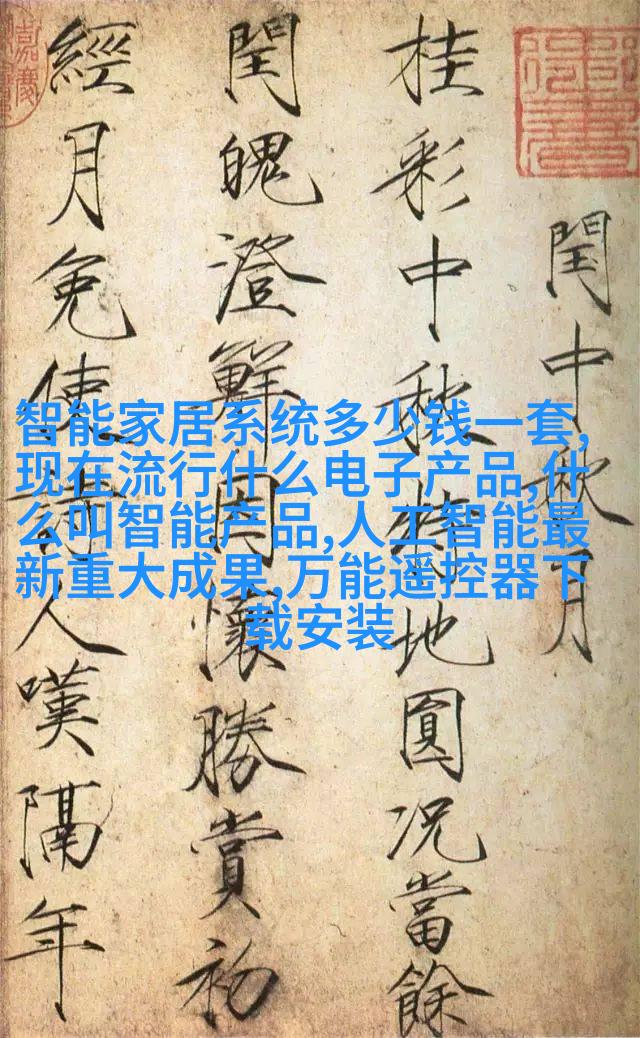 閏中秋月
桂彩中秋特地圓況當餘
閏魄澄鮮因懷勝賞初
經月免使詩人嘆隔年
智能家居系统多少钱一套,
现在流行什么电子产品,什
么叫智能产品,人工智能最
新重大成果,万能遥控器下
载安装